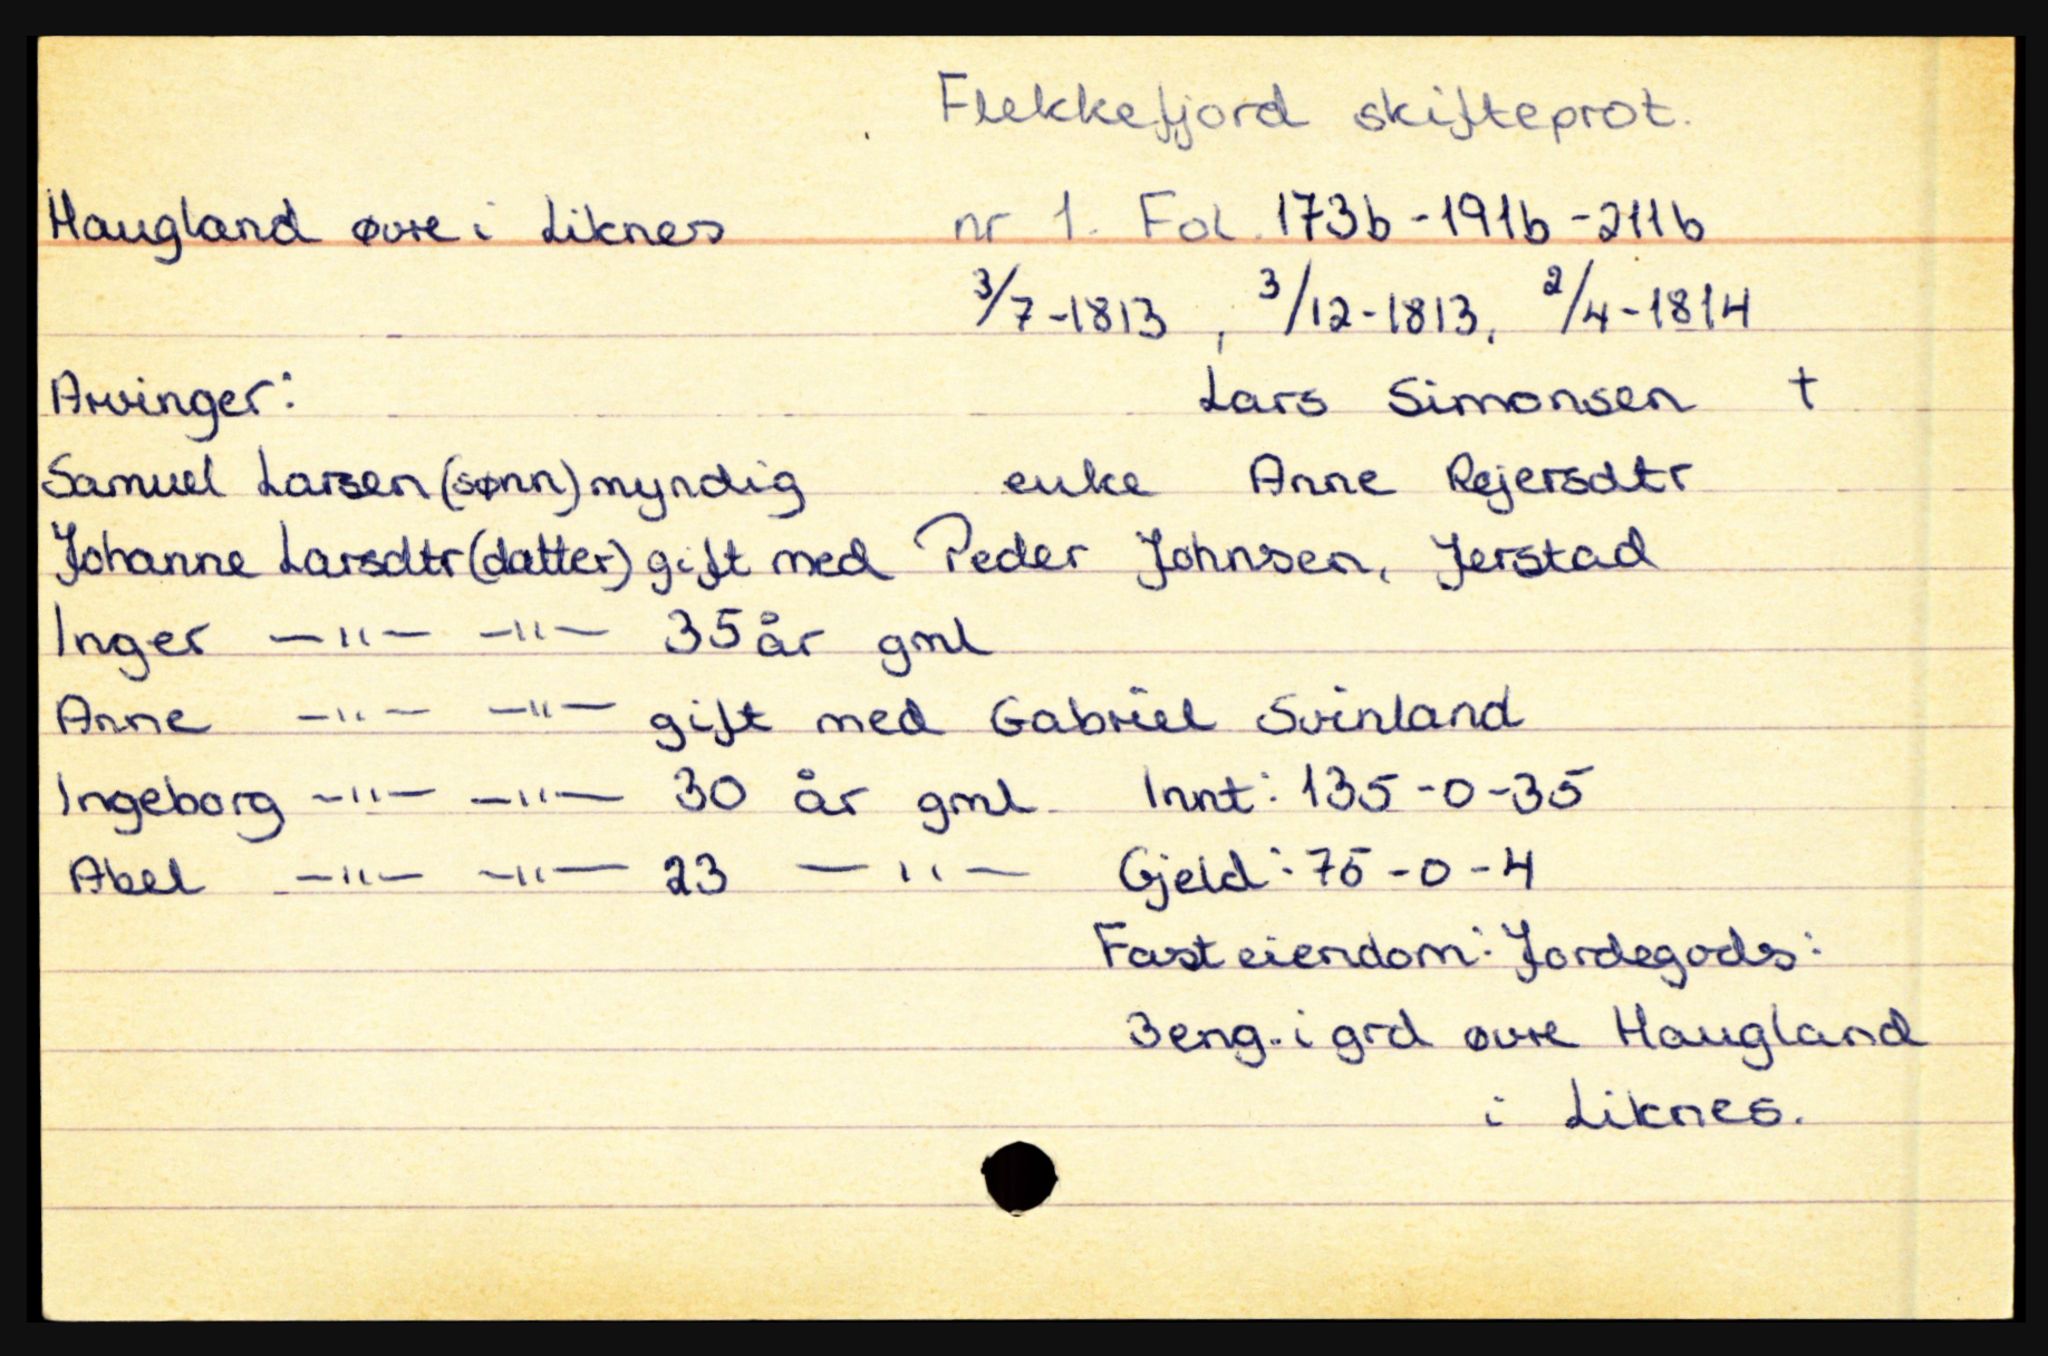 Flekkefjord skifteprot.
Haugland øvre i Liknes nr 1. Fol. 173b - 191b - 211b
3/7-1813, 3/12-1813, 2/4-1814
Arvinger: Lars Simonsen †
Samuel Larsen (sønn) myndig enke Anne Rejersdtr
Johanne Larsdtr (datter) gift med Peder Johnsen, Jerstad
Inger —"— —"— 35 år gml
Anne —"— —"— gift med Gabriel Svinland
Ingeborg —"— —"— 30 år gml Innt: 135-0-35
Abel —"— —"— 23 —"— Gjeld: 75-0-4
Fast eiendom: Jordegods:
3 eng. i grd øvre Haugland
i Liknes.